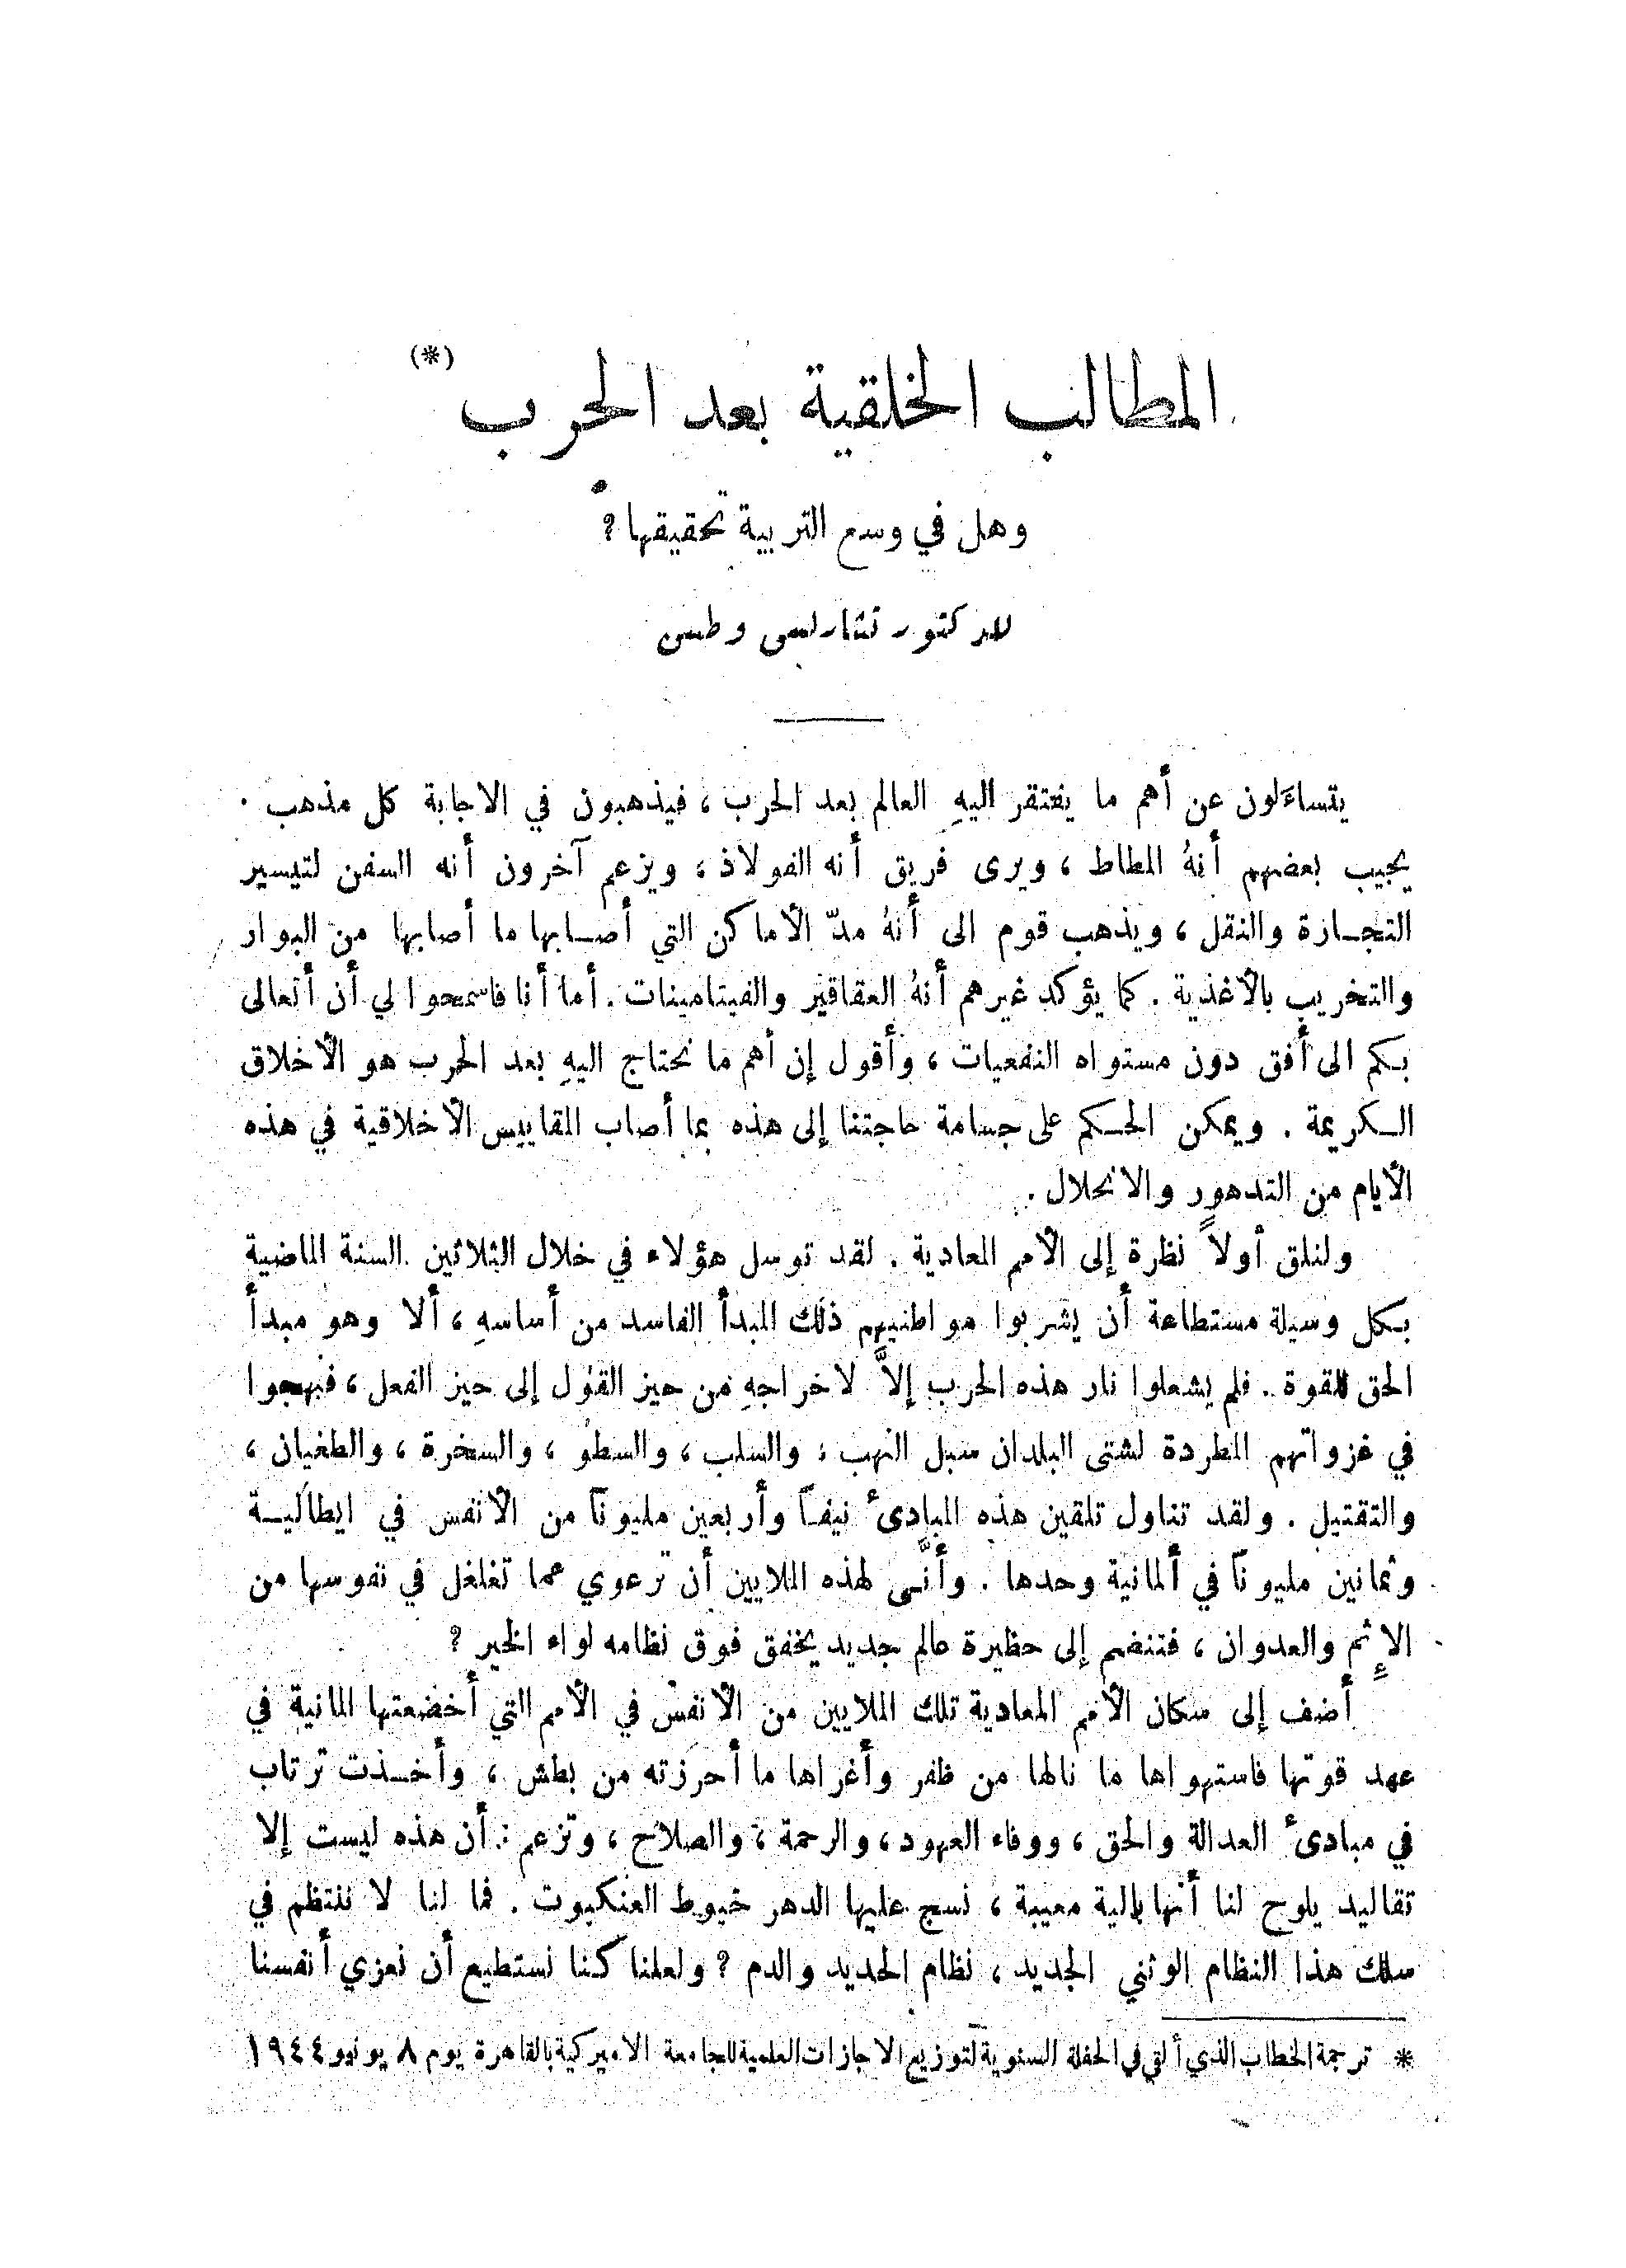 المطالب الخلقية بعد الحرب (*)
وهل في وسع التربية تحقيقها؟
للدكتور تشارلس وطسن
يتساءَلون عن أهم ما يفتقر اليهِ العالم بعد الحرب ، فيذهبون في الاجابة كل مذهب .
يجيب بعضهم أنهُ المطاط ، ويرى فريق أنه الفولاذ ، ويزعم آخرون أنه السفن لتيسير
التجـارة والنقل ، ويذهب قوم الى أنهُ مدّ الأماكن التي أصـابها ما أصابها من البوار
والتخريب بالأغذية . كما يؤكد غيرهم أنهُ العقاقير والفيتامينات . أما أنا فاسمحوا لي أن أتعالى
بكم الى أفق دون مستواه النفعيات ، وأقول إن أهم ما نحتاج اليهِ بعد الحرب هو الأخلاق
الـكريمة . ويمكن الحـكم على جسامة حاجتنا إلى هذه بما أصاب المقاييس الأخلاقية في هذه
الأيام من التدهور والانحلال .
ولنلق أولاً نظرة إلى الأمم المعادية . لقد توسل هؤلاء في خلال الثلاثين السنة الماضية
بـكل وسيلة مستطاعة أن يشربوا مواطنيهم ذلك المبدأ الفاسد من أساسهِ ، ألا وهو مبدأ
الحق للقوة . فلم يشعلوا نار هذه الحرب إلاَّ لاخراجهِ من حيز القول إلى حيز الفعل ، فنهجوا
في غزواتهم المطردة لشتى البلدان سبل النهب ، والسلب ، والسطو ، والسخرة ، والطغيان ،
والتقتيل . ولقد تناول تلقين هذه المبادئ نيفـاً وأربعين مليوناً من الأنفس في ايطاليـة
وثمانين مليوناً في ألمانية وحدها . وأنَّـى لهذه الملايين أن ترعوي عما تغلغل في نفوسها من
الإثم والعدوان ، فتنضم إلى حظيرة عالم جديد يخفق فوق نظامه لواء الخير ؟
أضف إلى سكان الأمم المعادية تلك الملايين من الأنفس في الأمم التي أخضعتها المانية في
عهد قوتها فاستهواها ما نالها من ظفر وأغراها ما أحرزته من بطش ، وأخـذت ترتاب
في مبادئ العدالة والحق ، ووفاء العهود ، والرحمة ، والصلاح ، وتزعم : أن هذه ليست إلا
تقاليد يلوح لنا أنها بالية معيبة ، نسج عليها الدهر خيوط العنكبوت . فما لنا لا ننتظم في
سلك هذا النظام الوثني الجديد ، نظام الحديد والدم ؟ ولعلنا كـنا نستطيع أن نعزي أنفسنا
* ترجمة الخطاب الذي ألقي في الحفلة السنوية لتوزيع الاجازات العلمية للجامعة الاميركية بالقاهرة يوم ٨ يونيو ١٩٤٤